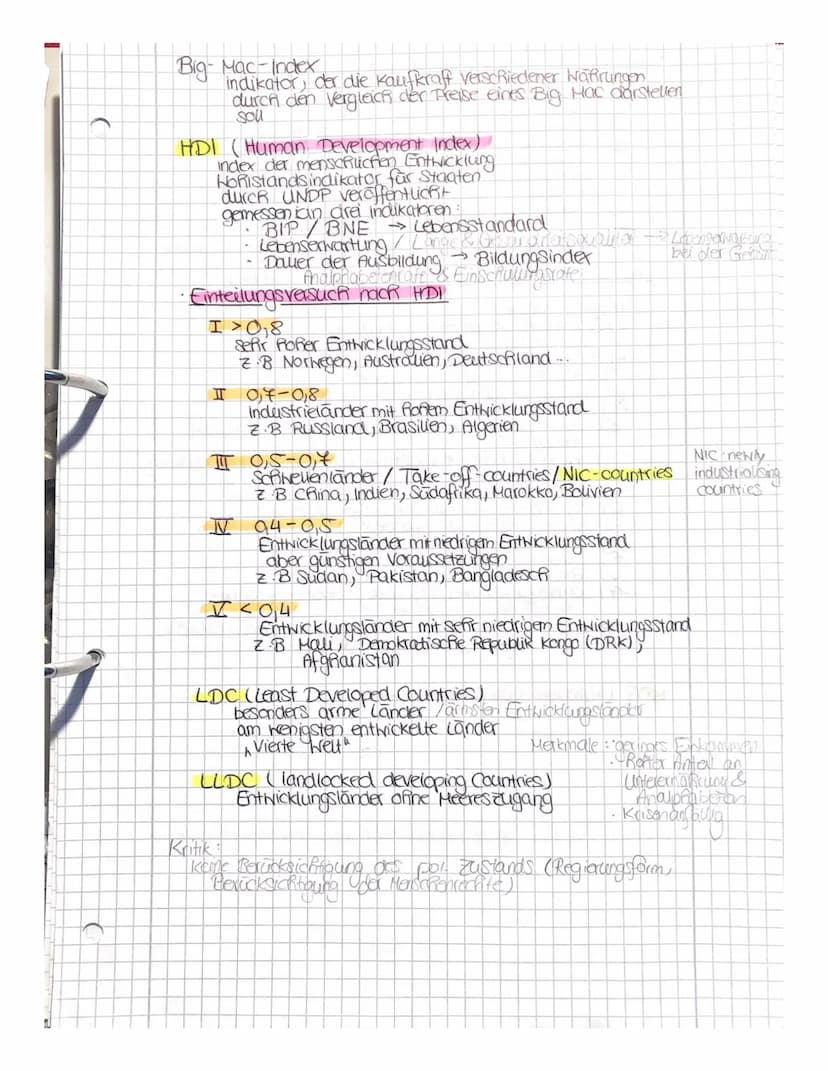 Big-Mac-Index
Indikator, der die Kaufkraft verschiedener Währungen
durch den Vergleich der Preise eines Big Mac darstellen
soll
HDI (Human Development Index)
Index der menschlichen Entwicklung
Wohlstandsindikator für Staaten
durch UNDP veröffentlicht
gemessen an drei Indikatoren:
· BIP / BNE → Lebensstandard
· Lebenserwartung / Länge & Gesundheitsqualität → Lebenserwartung
bei der Geburt
· Dauer der Ausbildung → Bildungsindex
Analphabetenrate & Einschulungsrate
· Einteilungsversuch nach HDI
I > 0,8
sehr hoher Entwicklungsstand
z.B Norwegen, Australien, Deutschland ...
II 0,7-0,8
Industrieländer mit hohem Entwicklungsstand
z.B Russland, Brasilien, Algerien
III 0,5-0,7
Schwellenländer / Take-off-countries / NIC-countries
z.B China, Indien, Südafrika, Marokko, Bolivien
NIC: newly
industrialising
countries
IV 0,4-0,5
Entwicklungsländer mit niedrigem Entwicklungsstand
aber günstigen Voraussetzungen
z.B Sudan, Pakistan, Bangladesch
V < 0,4
Entwicklungsländer mit sehr niedrigem Entwicklungsstand
z.B Mali, Demokratische Republik Kongo (DRK),
Afghanistan
LDC (Least Developed Countries)
besonders arme Länder / ärmsten Entwicklungsländer
am wenigsten entwickelte Länder
„Vierte Welt"
Merkmale: · geringes Einkommen
· hoher Anteil an
Unterernährung &
Analphabeten
· Krisenanfällig
LLDC (landlocked developing Countries)
Entwicklungsländer ohne Meereszugang
Kritik:
keine Berücksichtigung des pol. Zustands (Regierungsform,
Berücksichtigung der Menschenrechte)